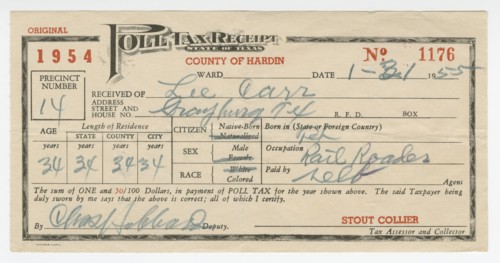 ORIGINAL
1954 POLL TAX RECEIPT
STATE OF TEXAS
COUNTY OF HARDIN
No 1176
WARD DATE 1-31 1955
PRECINCT NUMBER 14
RECEIVED OF Lee Carr
ADDRESS STREET AND HOUSE NO. Grayburg Tex R. F. D. BOX
AGE Length of Residence CITIZEN Native-Born Naturalized Born in (State or Foreign Country)
years STATE years COUNTY years CITY years Tex
SEX Male Female Occupation Rail Roader
34 34 34 34
RACE White Colored Paid by self Agent
The sum of ONE and 50/100 Dollars, in payment of POLL TAX for the year shown above. The said Taxpayer being
duly sworn by me says that the above is correct; all of which I certify.
STOUT COLLIER
By Deputy. Tax Assessor and Collector